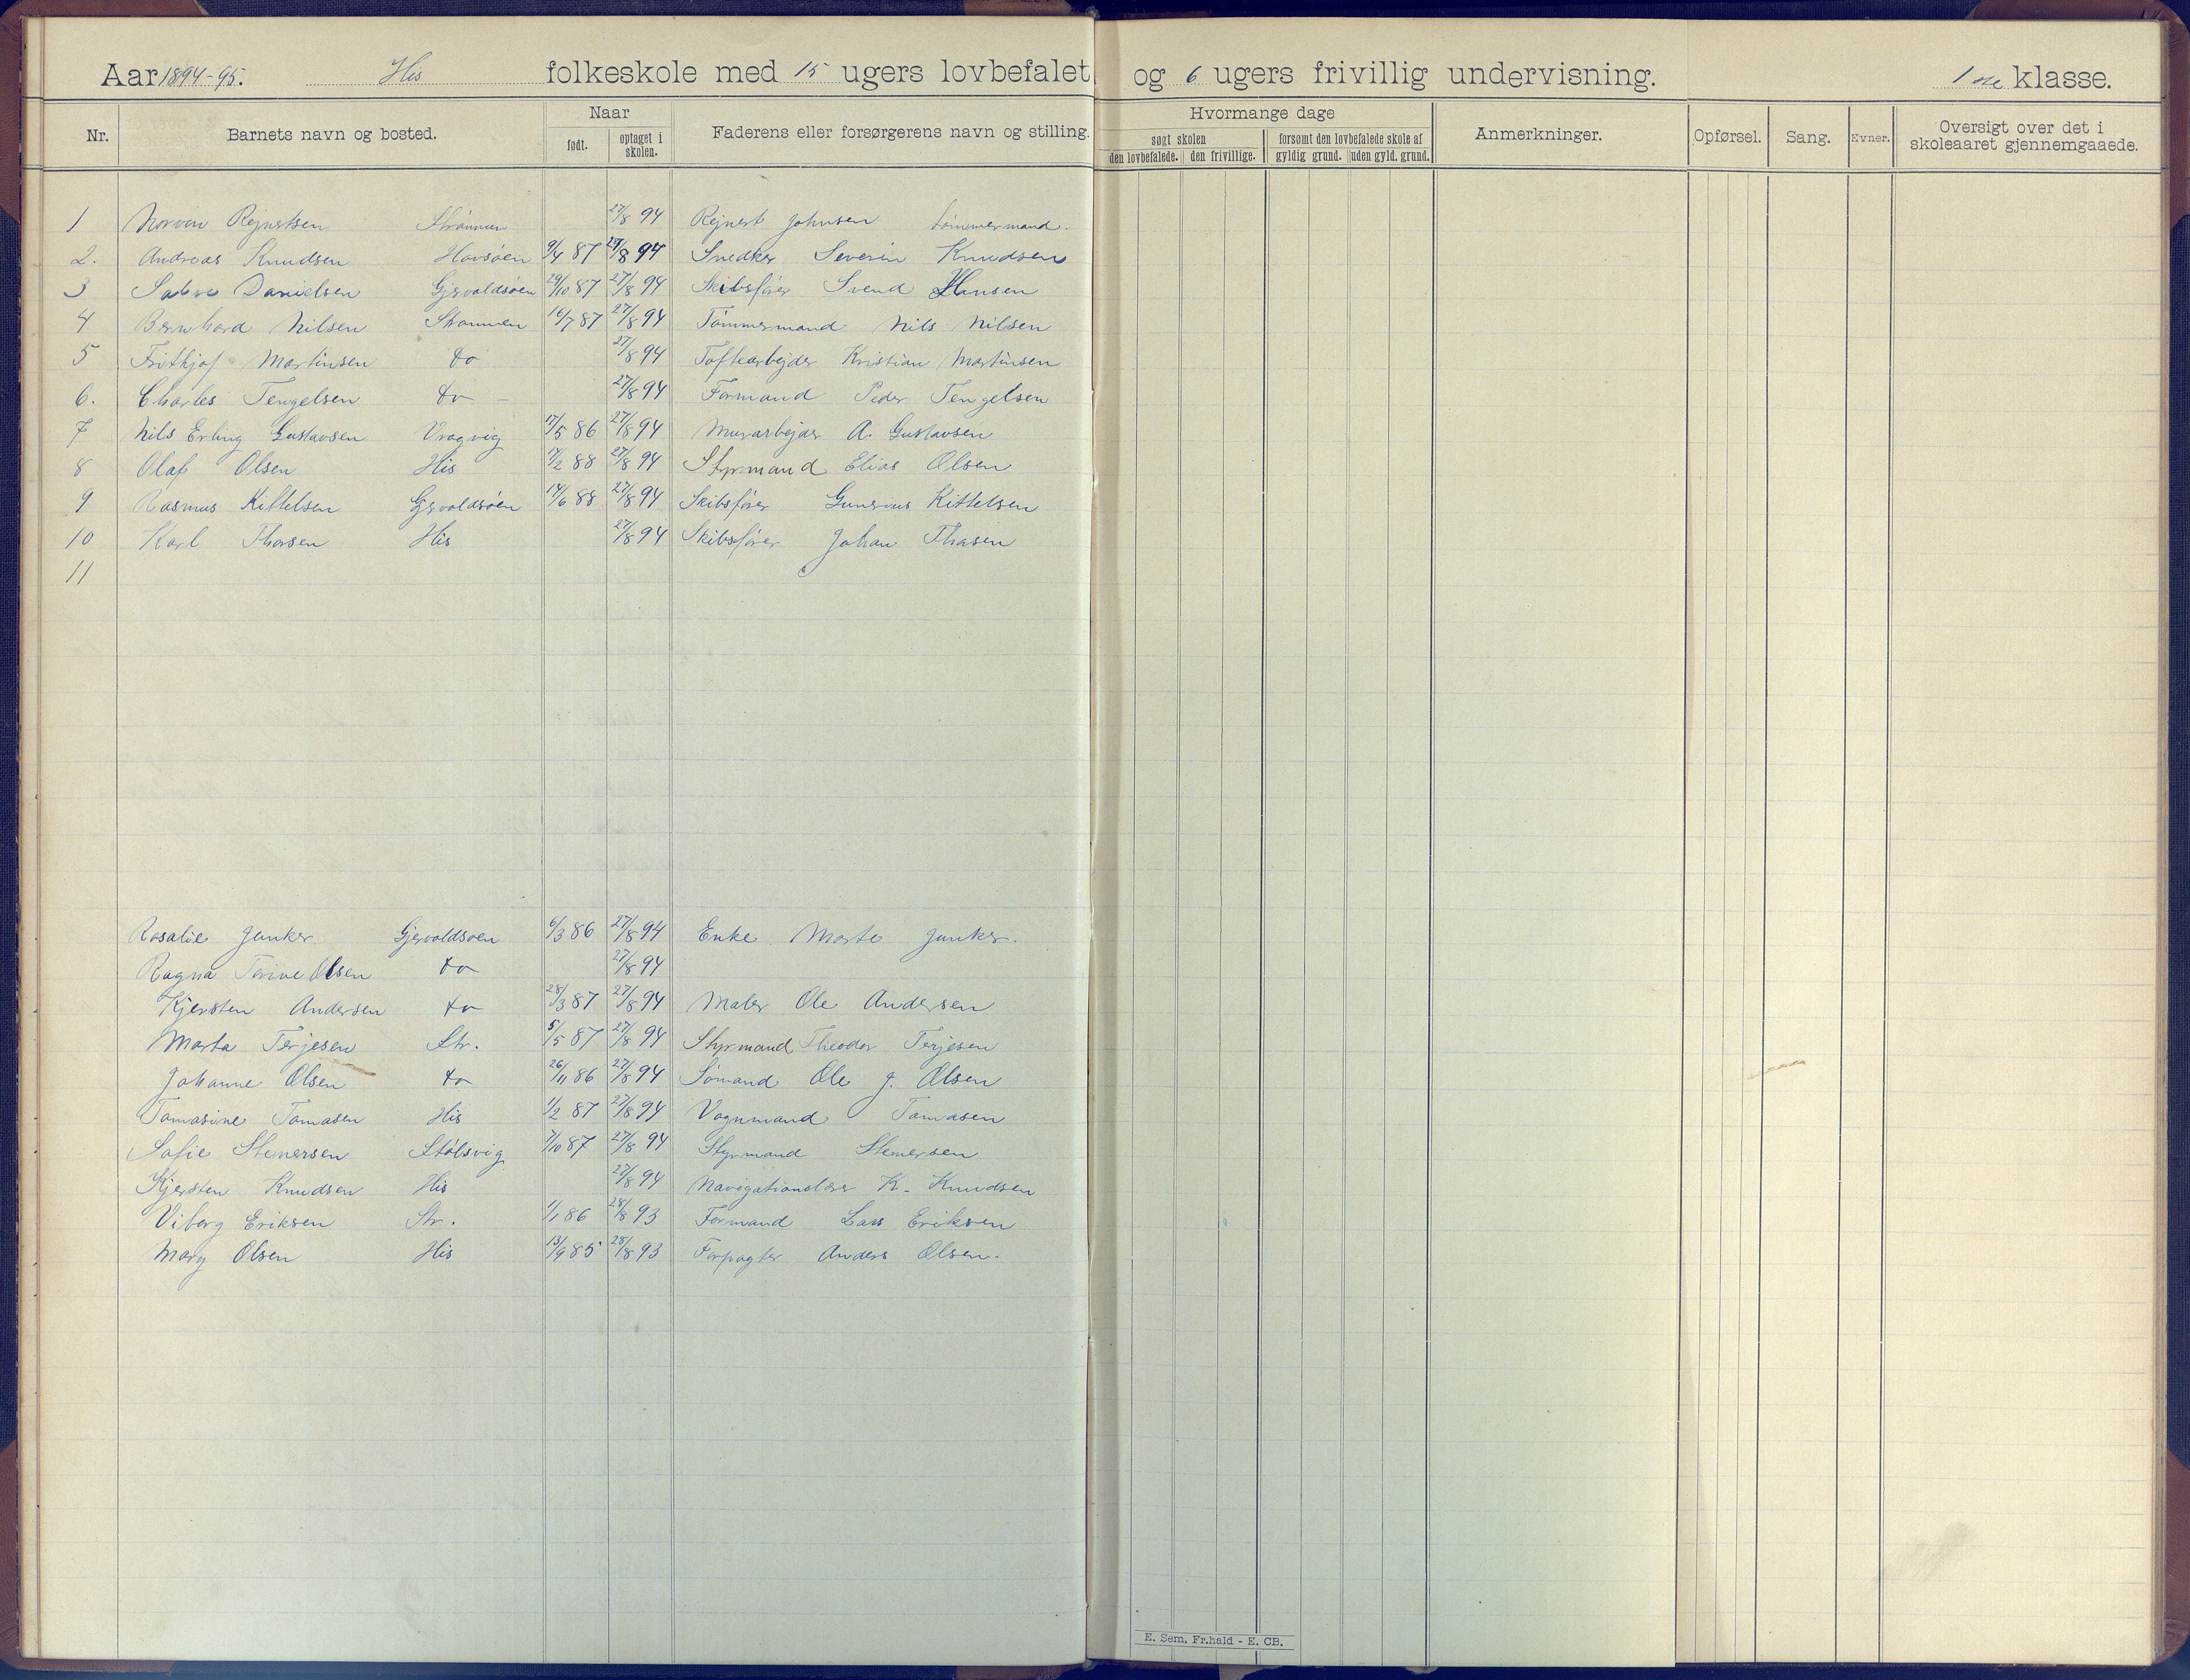 Aar 1894-95. His folkeskole med 15 ugers lovbefalet og 6 ugers frivillig undervisning. 1ste klasse.
Nr. Barnets navn og bosted. Naar født. optaget i skolen. Faderens eller forsørgerens navn og stilling. Hvormange dage søgt skolen den lovbefalede. den frivillige. forsømt den lovbefalede skole af gyldig grund. uden gyld. grund. Anmerkninger. Opførsel. Sang. Evner. Oversigt over det i skoleaaret gjennemgaaede.
1 Rejnertsen Strømmen 27/8 94 Rejnert Johnsen tømmermand.
2. Andreas Knudsen Havsøen 9/4 87 27/8 94 Snedker Severin Knudsen
3 Danielsen Gjervoldsøen 29/10 87 27/8 94 Skibsfører Svend Hansen
4 Bernhard Nilsen Strømmen 16/7 87 27/8 94 Tømmermand Nils Nilsen
5 Frithjof Martinsen do 27/8 94 Toftearbejder Kristian Martinsen
6. Charles Tengelsen do - 27/8 94 Formand Peder Tengelsen
7 Nils Erling Gustavsen Vragvig 17/5 86 27/8 94 Murarbejder A. Gustavsen
8 Olaf Olsen His 17/2 88 27/8 94 Styrmand Elias Olsen
9 Rasmus Kittelsen Gjervoldsøen 14/6 88 27/8 94 Skibsfører Gunerius Kittelsen
10 Karl Thorsen His 27/8 94 Skibsfører Johan Thorsen
11
Rosalie Junker Gjervoldsøen 6/3 86 27/8 94 Enke Marte Junker.
Ragna Terine Olsen do 27/8 94
Kjersten Andersen do 28/3 87 27/8 94 Maler Ole Andersen
Marta Terjesen Str. 5/5 87 27/8 94 Styrmand Theodor Terjesen
Johanne Olsen do 26/11 86 27/8 94 Sømand Ole J. Olsen
Tomasine Tomasen His 1/2 87 27/8 94 Vognmand Tomasen
Sofie Stenersen Stølsvig 7/10 87 27/8 94 Styrmand Stenersen
Kjersten Knudsen His 27/8 94 Navigationslærer K. Knudsen
Viborg Eriksen Str. 1/1 86 28/8 93 Formand Lars Eriksen
Mary Olsen His 13/9 85 28/8 93 Forpagter Anders Olsen.
E. Sem, Fr.hald - E. CB.